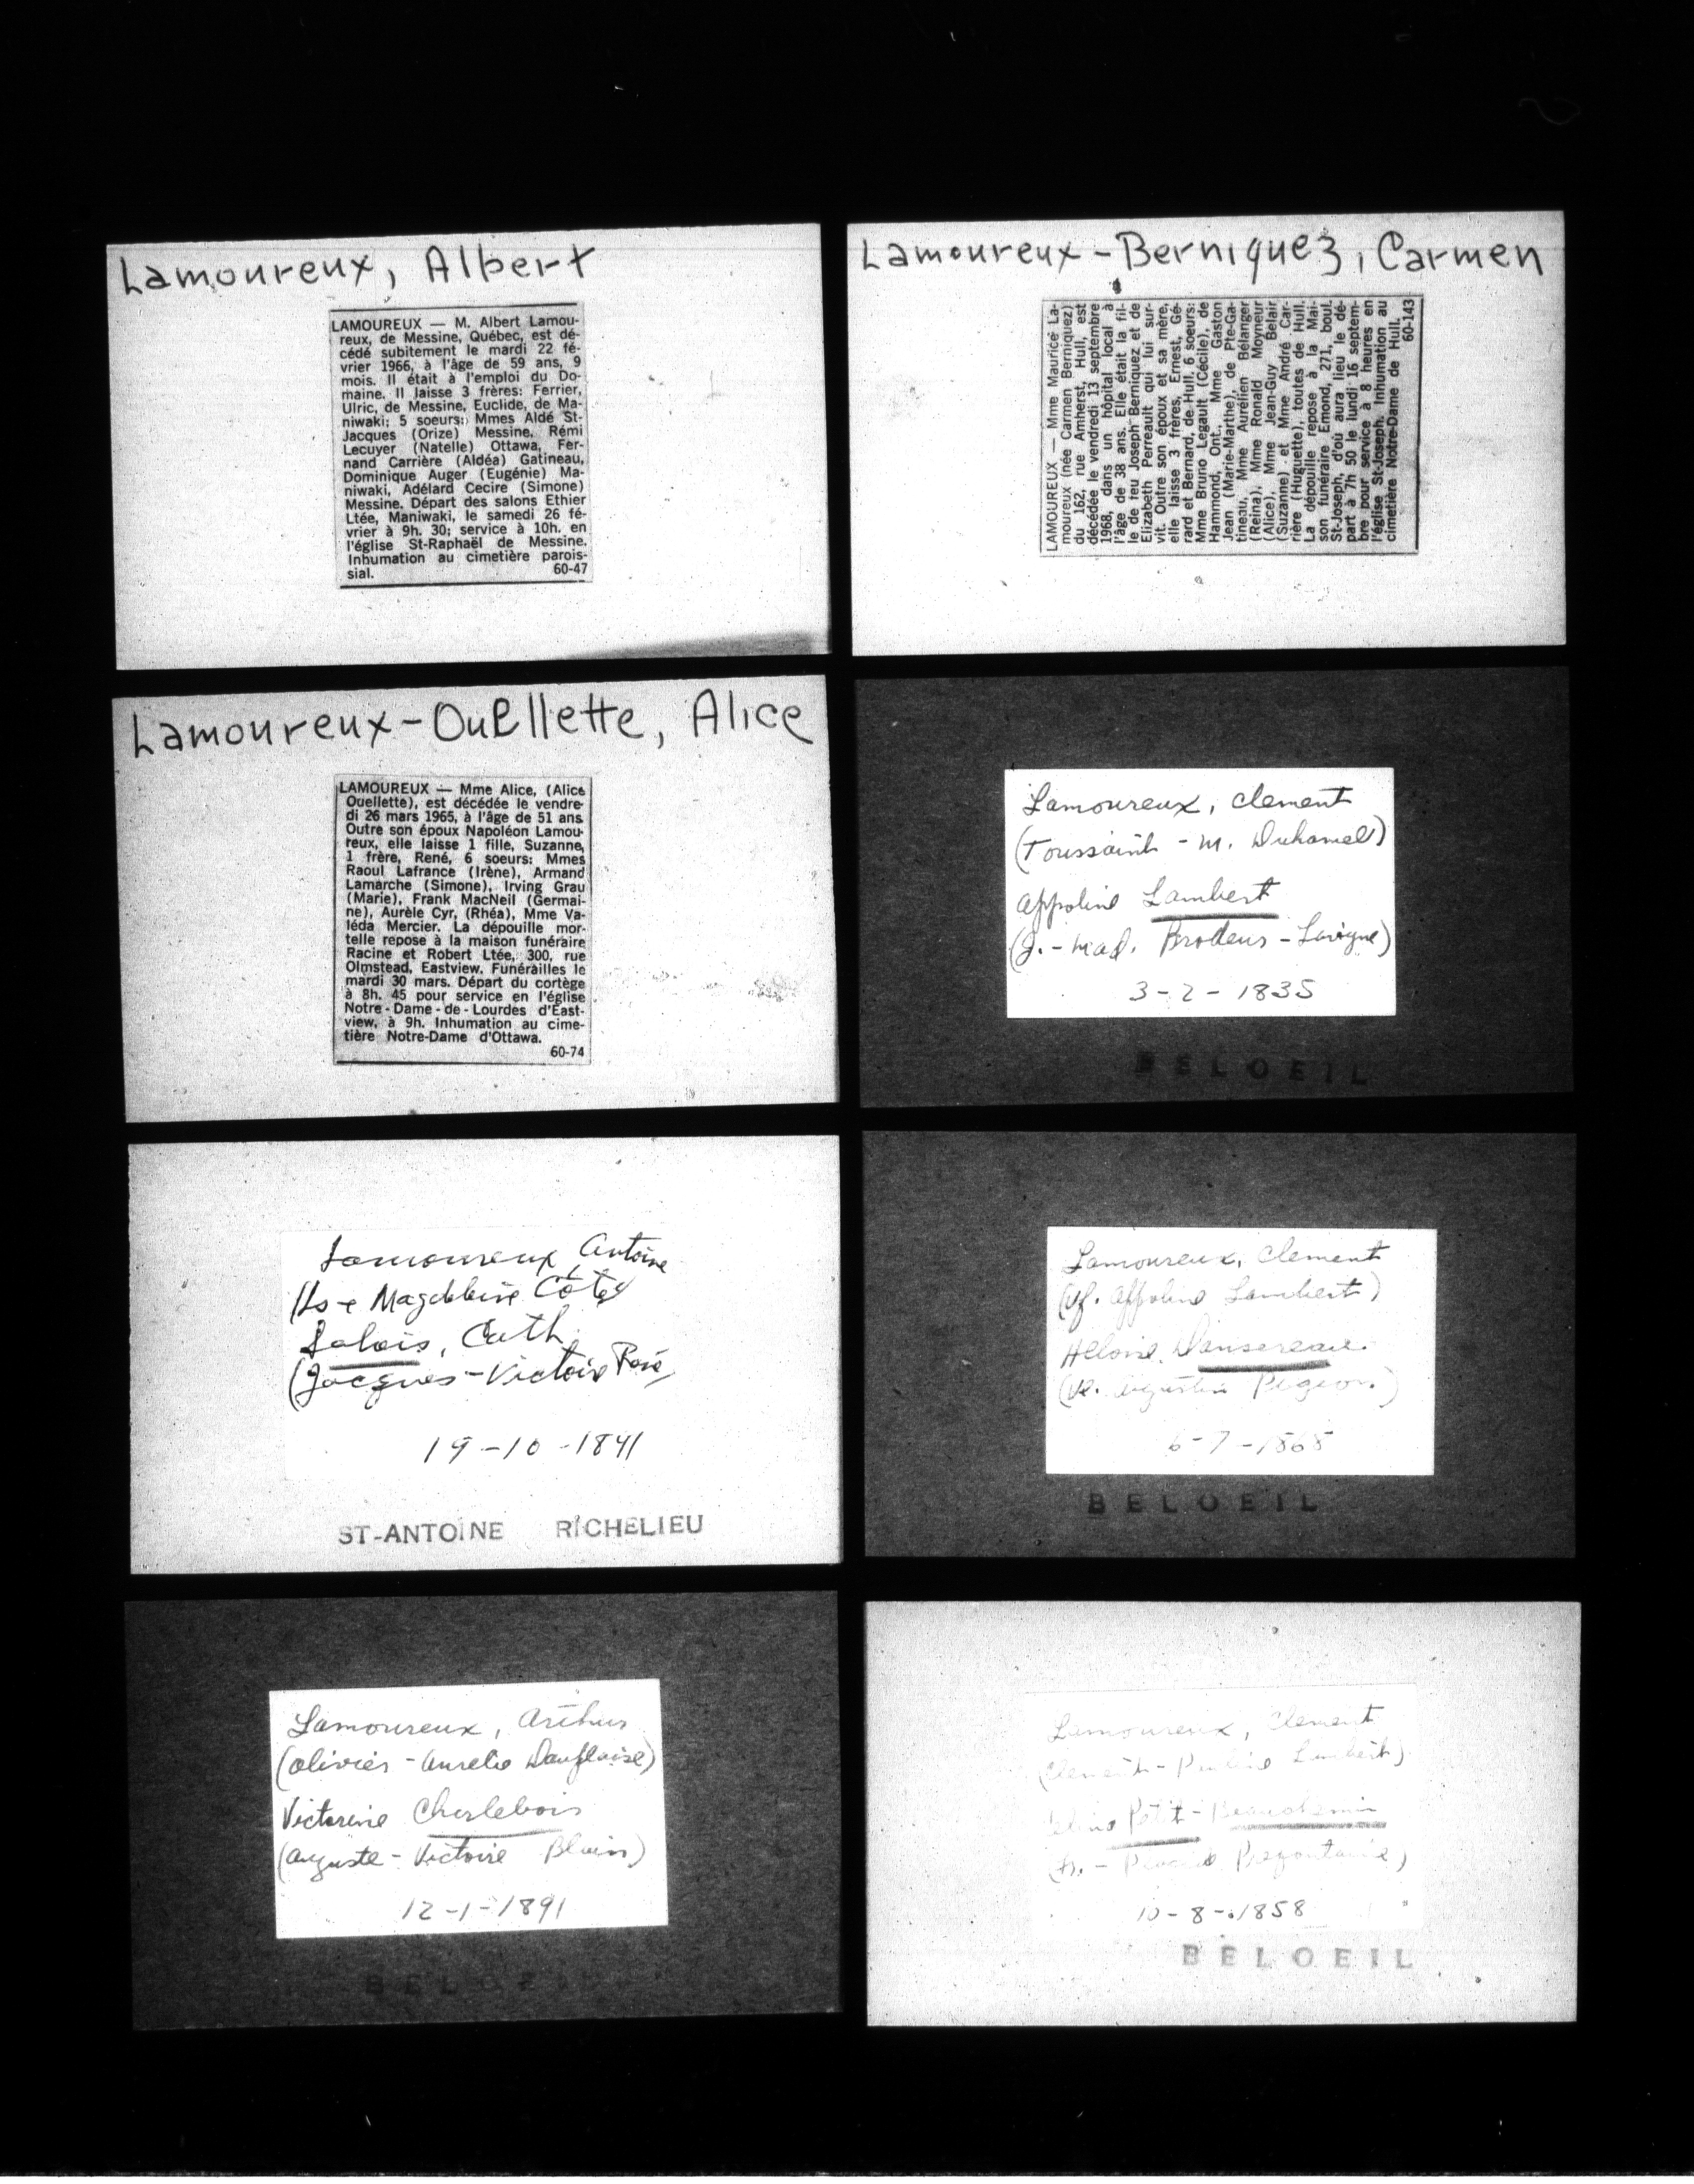 Lamoureux, Albert
LAMOUREUX — M. Albert Lamou-
reux, de Messine, Québec, est dé-
cédé subitement le mardi 22 fé-
vrier 1966, à l'âge de 59 ans, 9
mois. Il était à l'emploi du Do-
maine. Il laisse 3 frères: Ferrier,
Ulric, de Messine, Euclide, de Ma-
niwaki; 5 soeurs: Mmes Aldé St-
Jacques (Orize) Messine, Rémi
Lecuyer (Natelle) Ottawa, Fer-
nand Carrière (Aldéa) Gatineau,
Dominique Auger (Eugénie) Ma-
niwaki, Adélard Cecire (Simone)
Messine. Départ des salons Ethier
Ltée, Maniwaki, le samedi 26 fé-
vrier à 9h. 30; service à 10h. en
l'église St-Raphaël de Messine.
Inhumation au cimetière parois-
sial. 60-47
Lamoureux-Berniquez, Carmen
LAMOUREUX — Mme Maurice La-
moureux (née Carmen Berniquez)
du 162, rue Amherst, Hull, est
décédée le vendredi 13 septembre
1968, dans un hôpital local à
l'âge de 38 ans. Elle était la fil-
le de feu Joseph Berniquez et de
Elizabeth Perreault qui lui sur-
vit. Outre son époux et sa mère,
elle laisse 3 frères, Ernest, Gé-
rard et Bernard, de Hull, 6 soeurs:
Mme Bruno Legault (Cécile), de
Hammond, Ont., Mme Gaston
Jean (Marie-Marthe), de Pte-Ga-
tineau, Mme Aurélien Bélanger
(Reina), Mme Ronald Moyneur
(Alice), Mme Jean-Guy Belair
(Suzanne) et Mme André Car-
rière (Huguette), toutes de Hull.
La dépouille repose à la Mai-
son funéraire Emond, 271, boul.
St-Joseph, d'où aura lieu le dé-
part à 7h 50 le lundi 16 septem-
bre pour service à 8 heures en
l'église St-Joseph. Inhumation au
cimetière Notre-Dame de Hull.
60-143
Lamoureux-Ouellette, Alice
LAMOUREUX — Mme Alice, (Alice
Ouellette), est décédée le vendre-
di 26 mars 1965, à l'âge de 51 ans
Outre son époux Napoléon Lamou-
reux, elle laisse 1 fille, Suzanne,
1 frère, René, 6 soeurs: Mmes
Raoul Lafrance (Irène), Armand
Lamarche (Simone), Irving Grau
(Marie), Frank MacNeil (Germai-
ne), Aurèle Cyr, (Rhéa), Mme Va-
léda Mercier. La dépouille mor-
telle repose à la maison funéraire
Racine et Robert Ltée, 300, rue
Olmstead, Eastview. Funérailles le
mardi 30 mars. Départ du cortège
à 8h. 45 pour service en l'église
Notre-Dame-de-Lourdes d'East-
view, à 9h. Inhumation au cime-
tière Notre-Dame d'Ottawa.
60-74
Lamoureux, Clement
(Toussaint - M. Duhamel)
Appoline Lambert
(J. - Mad. Brodeur - Lavigne)
3-2-1835
BELOEIL
Lamoureux, Antoine
(Ls + Magdeleine Côté)
Salois, Cath.
(Jacques - Victoire
19-10-1841
ST-ANTOINE RICHELIEU
Lamoureux, Clement
(vf. Appoline Lambert)
Heloise Dansereau
(ve. Augustin Pigeon.)
6-7-1868
BELOEIL
Lamoureux, Arthur
(Olivier - Aurelie Dauplaise)
Victorine Charlebois
(Auguste - Victoire Blain)
12-1-1891
BELOEIL
Lamoureux, Clement
(Clement - Lambert)
Petit-Beauchemin
Prefontaine)
10-8-1858
BELOEIL